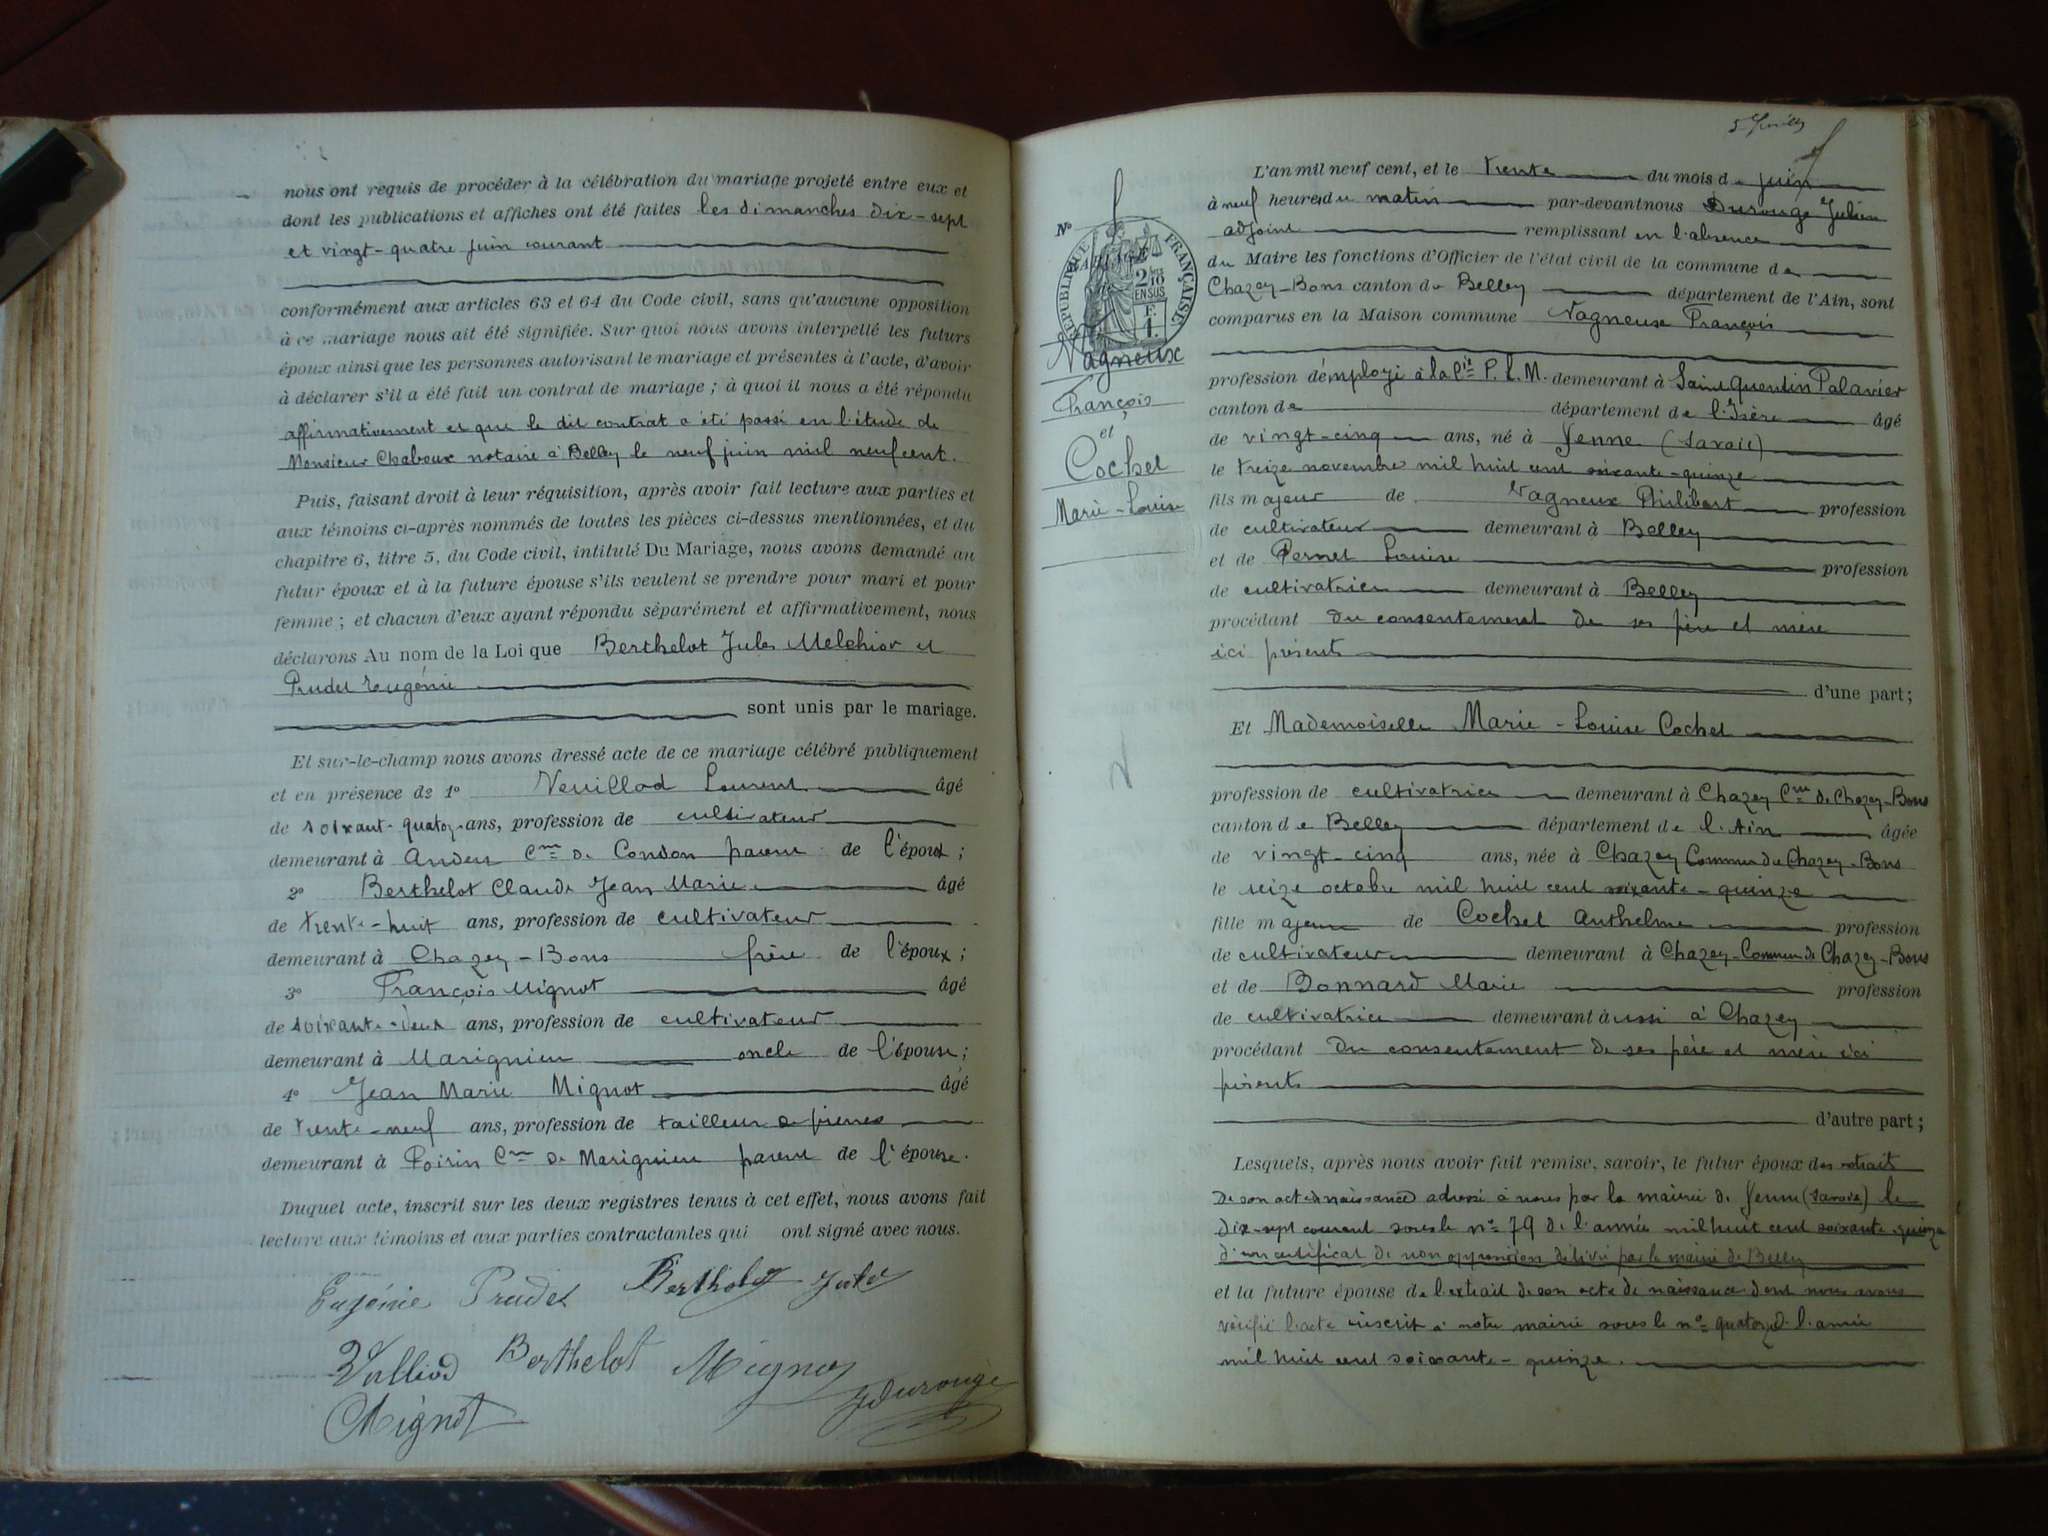 nous ont requis de procéder à la célébration du mariage projeté entre eux et
dont les publications et affiches ont été faites les dimanches dix-sept
et vingt-quatre juin courant
conformément aux articles 63 et 64 du Code civil, sans qu'aucune opposition
à ce mariage nous ait été signifiée. Sur quoi nous avons interpellé les futurs
époux ainsi que les personnes autorisant le mariage et présentes à l'acte, d'avoir
à déclarer s'il a été fait un contrat de mariage ; à quoi il nous a été répondu
affirmativement et que le dit contrat a été passé en l'étude de
Monsieur Chaboux notaire à Belley le neuf juin mil neuf cent.
Puis, faisant droit à leur réquisition, après avoir fait lecture aux parties et
aux témoins ci-après nommés de toutes les pièces ci-dessus mentionnées, et du
chapitre 6, titre 5, du Code civil, intitulé Du Mariage, nous avons demandé au
futur époux et à la future épouse s'ils veulent se prendre pour mari et pour
femme ; et chacun d'eux ayant répondu séparément et affirmativement, nous
déclarons Au nom de la Loi que Berthelot Jules Melchior et
Prudet Eugénie
sont unis par le mariage.
Et sur-le-champ nous avons dressé acte de ce mariage célébré publiquement
et en présence de 1° Veuillod Laurent âgé
de soixante-quatorze ans, profession de cultivateur
demeurant à Andert Cne de Condon parent de l'époux ;
2° Berthelot Claude Jean Marie âgé
de trente-huit ans, profession de cultivateur
demeurant à Chazey-Bons frère de l'époux ;
3° François Mignot âgé
de soixante-deux ans, profession de cultivateur
demeurant à Marignieu oncle de l'épouse ;
4° Jean Marie Mignot âgé
de trente-neuf ans, profession de tailleur de pierres
demeurant à Poirin Cne de Marignieu parent de l'épouse.
Duquel acte, inscrit sur les deux registres tenus à cet effet, nous avons fait
lecture aux témoins et aux parties contractantes qui ont signé avec nous.
Eugénie Prudet Berthelot Jules
Berthelot Mignot
Mignot JDurouge
5 Juillet
N°
RÉPUBLIQUE FRANÇAISE
2/10
EN SUS
F.
1.
Vagneux
François
et
Cochet
Marie-Louise
L'an mil neuf cent, et le trente du mois de juin
à neuf heures du matin par-devant nous Durouge Julien
adjoint remplissant en l'absence
du Maire les fonctions d'Officier de l'état civil de la commune de
Chazey-Bons canton de Belley département de l'Ain, sont
comparus en la Maison commune Vagneux François
profession d'employé à la Cie P. L. M. demeurant à Saint Quentin Palavier
canton de département de l'Isère âgé
de vingt-cinq ans, né à Yenne (Savoie)
le treize novembre mil huit cent soixante-quinze
fils majeur de Vagneux Philibert profession
de cultivateur demeurant à Belley
et de Pernet Louise profession
de cultivatrice demeurant à Belley
procédant du consentement de ses père et mère
ici présents
d'une part ;
Et Mademoiselle Marie-Louise Cochet
profession de cultivatrice demeurant à Chazey Cne de Chazey-Bons
canton de Belley département de l'Ain âgée
de vingt-cinq ans, née à Chazey Commune de Chazey-Bons
le seize octobre mil huit cent soixante-quinze
fille majeure de Cochet Anthelme profession
de cultivateur demeurant à Chazey-Commune de Chazey-Bons
et de Bonnard Marie profession
de cultivatrice demeurant aussi à Chazey
procédant du consentement de ses père et mère ici
présents
d'autre part ;
Lesquels, après nous avoir fait remise, savoir, le futur époux des extrait
de son acte de naissance adressé à nous par la mairie de Yenne (Savoie) le
dix-sept courant sous le n° 79 de l'année mil huit cent soixante-quinze
d'un certificat de non opposition délivré par le maire de Belley
et la future épouse de l'extrait de son acte de naissance dont nous avons
vérifié l'acte inscrit à notre mairie sous le n° quatorze de l'année
mil huit cent soixante-quinze.